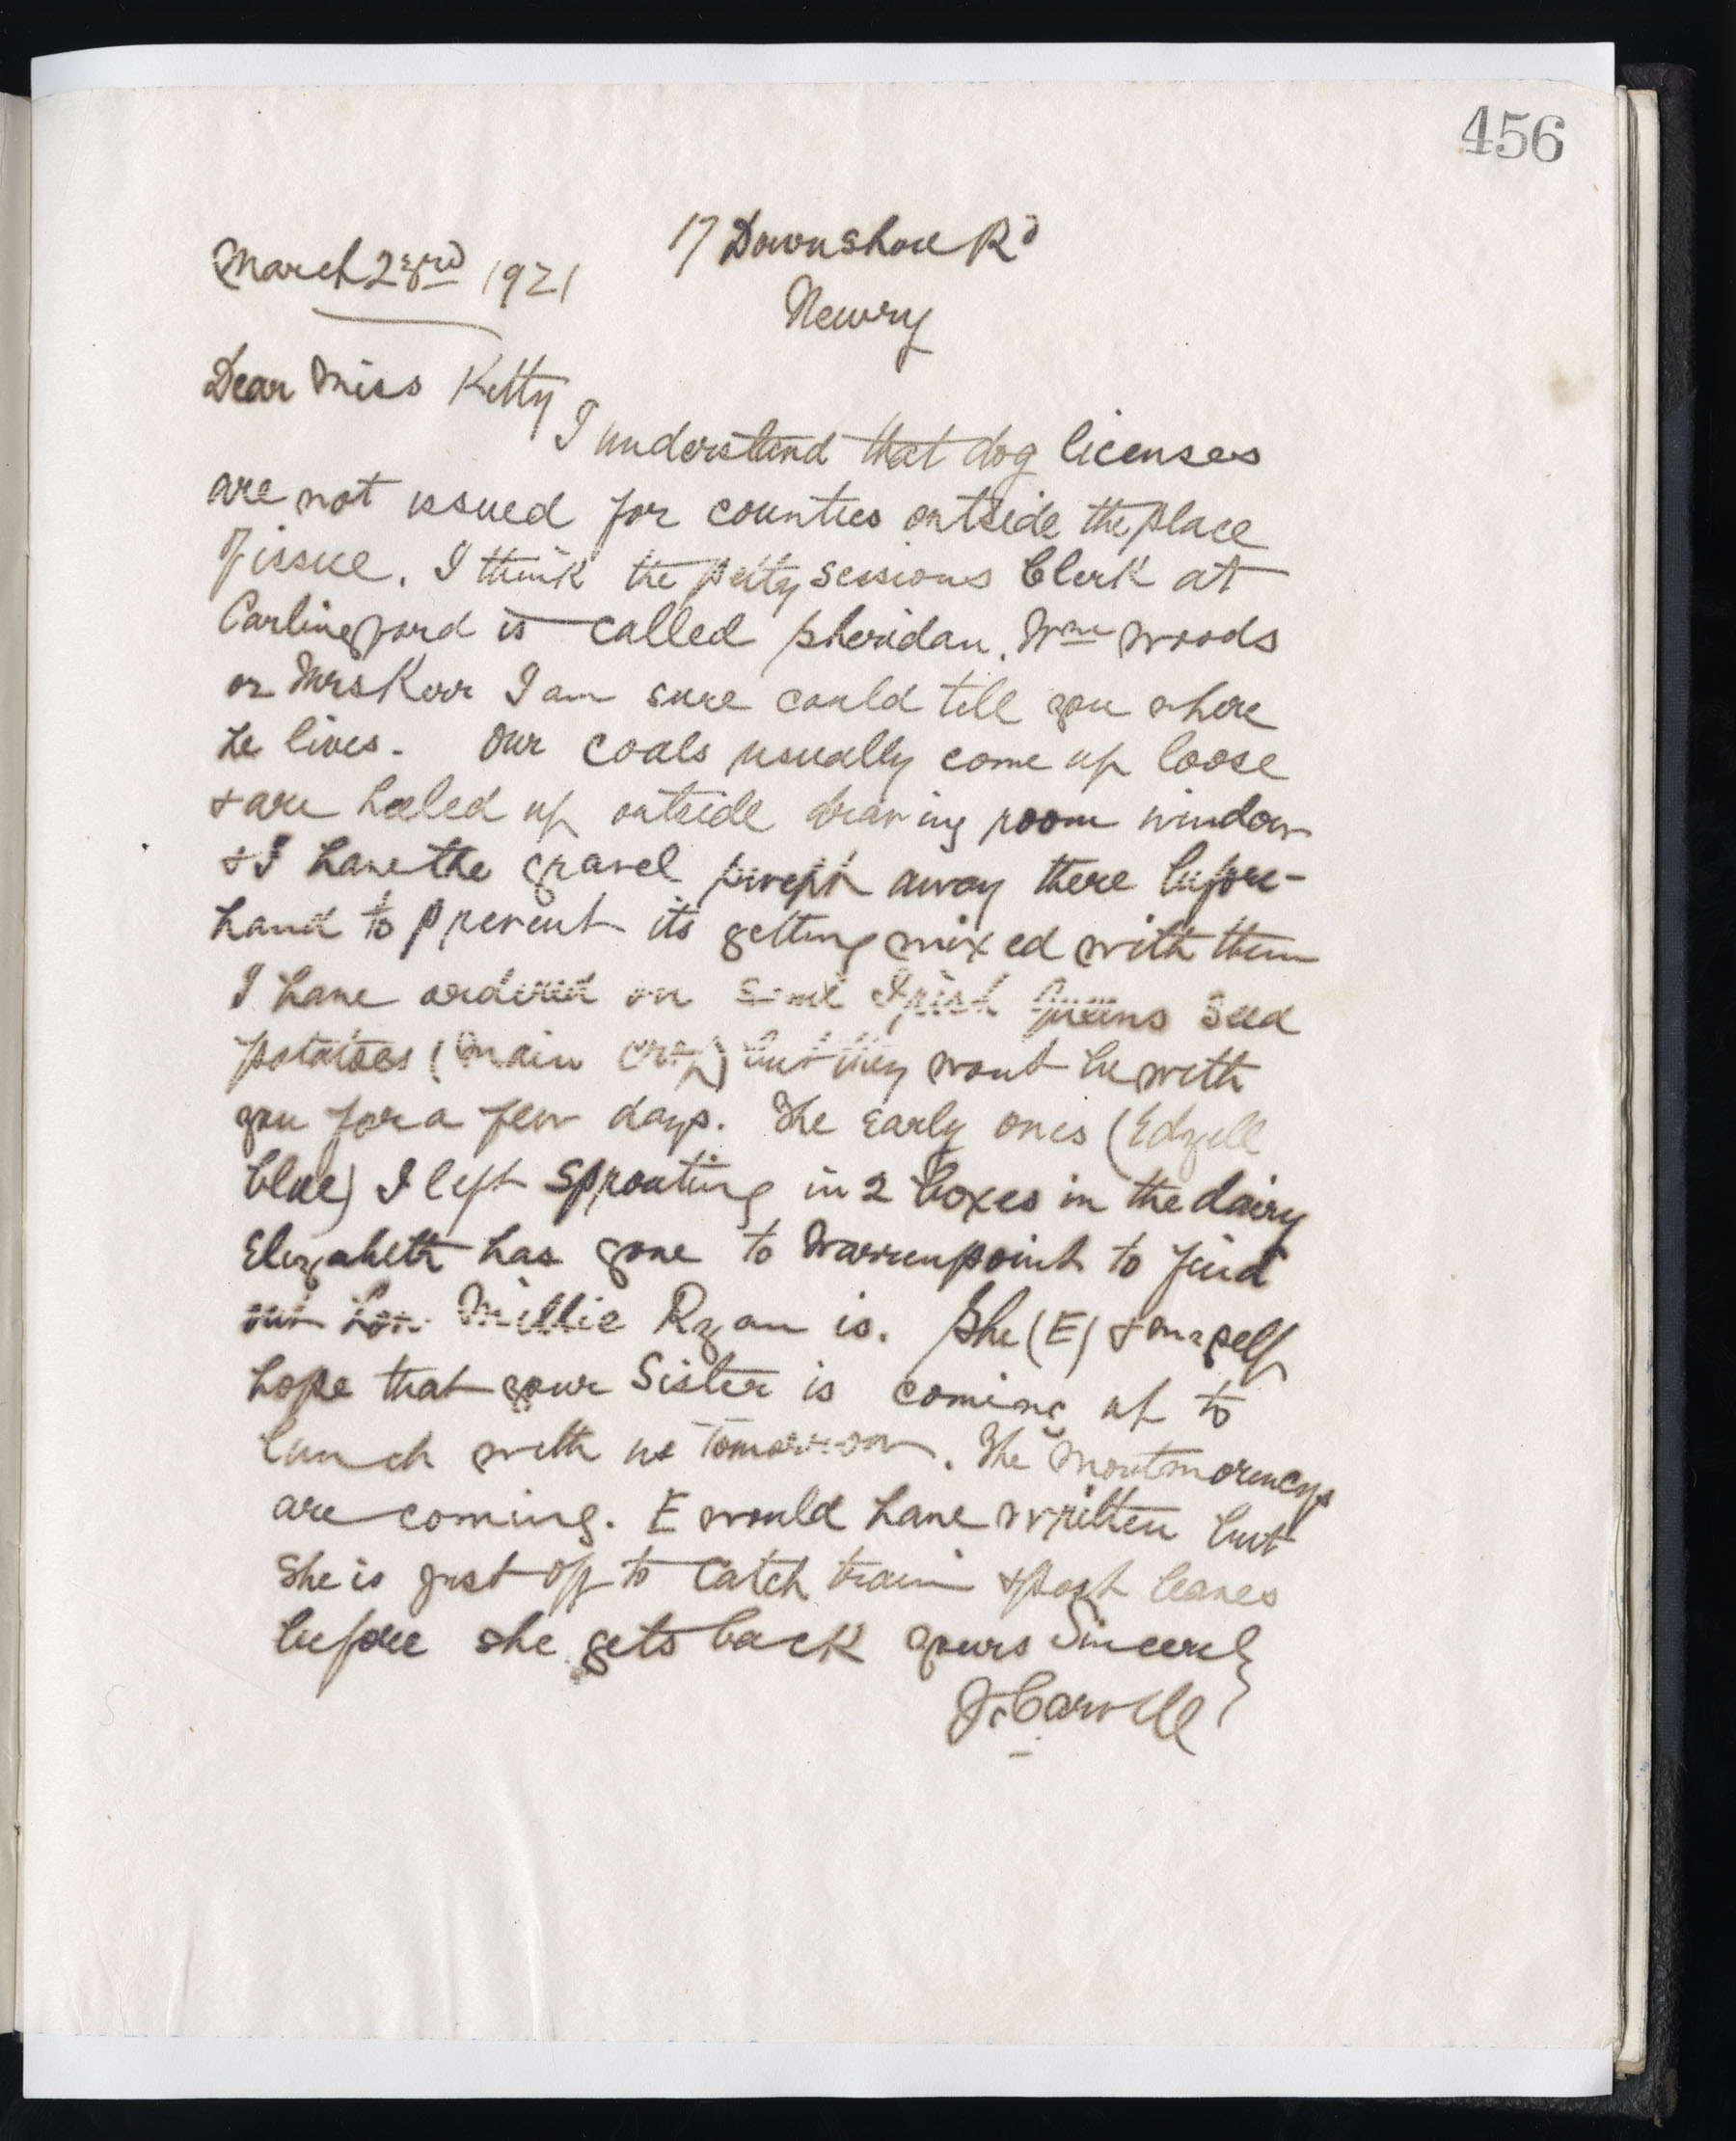 456
17 Downshire Rd
March 23rd 1921
Newry
Dear Miss Kitty
I understand that dog licenses
are not issued for counties outside the place
of issue. I think the petty sessions Clerk at
Carlingford is called Sheridan. Wm Woods
or Mrs Kerr I am sure could tell you where
he lives. Our coals usually come up loose
& are heeled up outside drawing room window
& I have the gravel swept away there before-
hand to prevent its getting mixed with them
I have ordered on some Irish Queens seed
potatoes (main crop) but they wont be with
you for a few days. The early ones (Edzell
blue) I left sprouting in 2 boxes in the dairy
Elizabeth has gone to Warrenpoint to find
out how Millie Ryan is. She (E) & myself
hope that your Sister is coming up to
lunch with us tomorrow. The Montmorencys
are coming. E would have written but
she is just off to catch train & post leaves
before she gets back yours Sincerely
J. Carvill